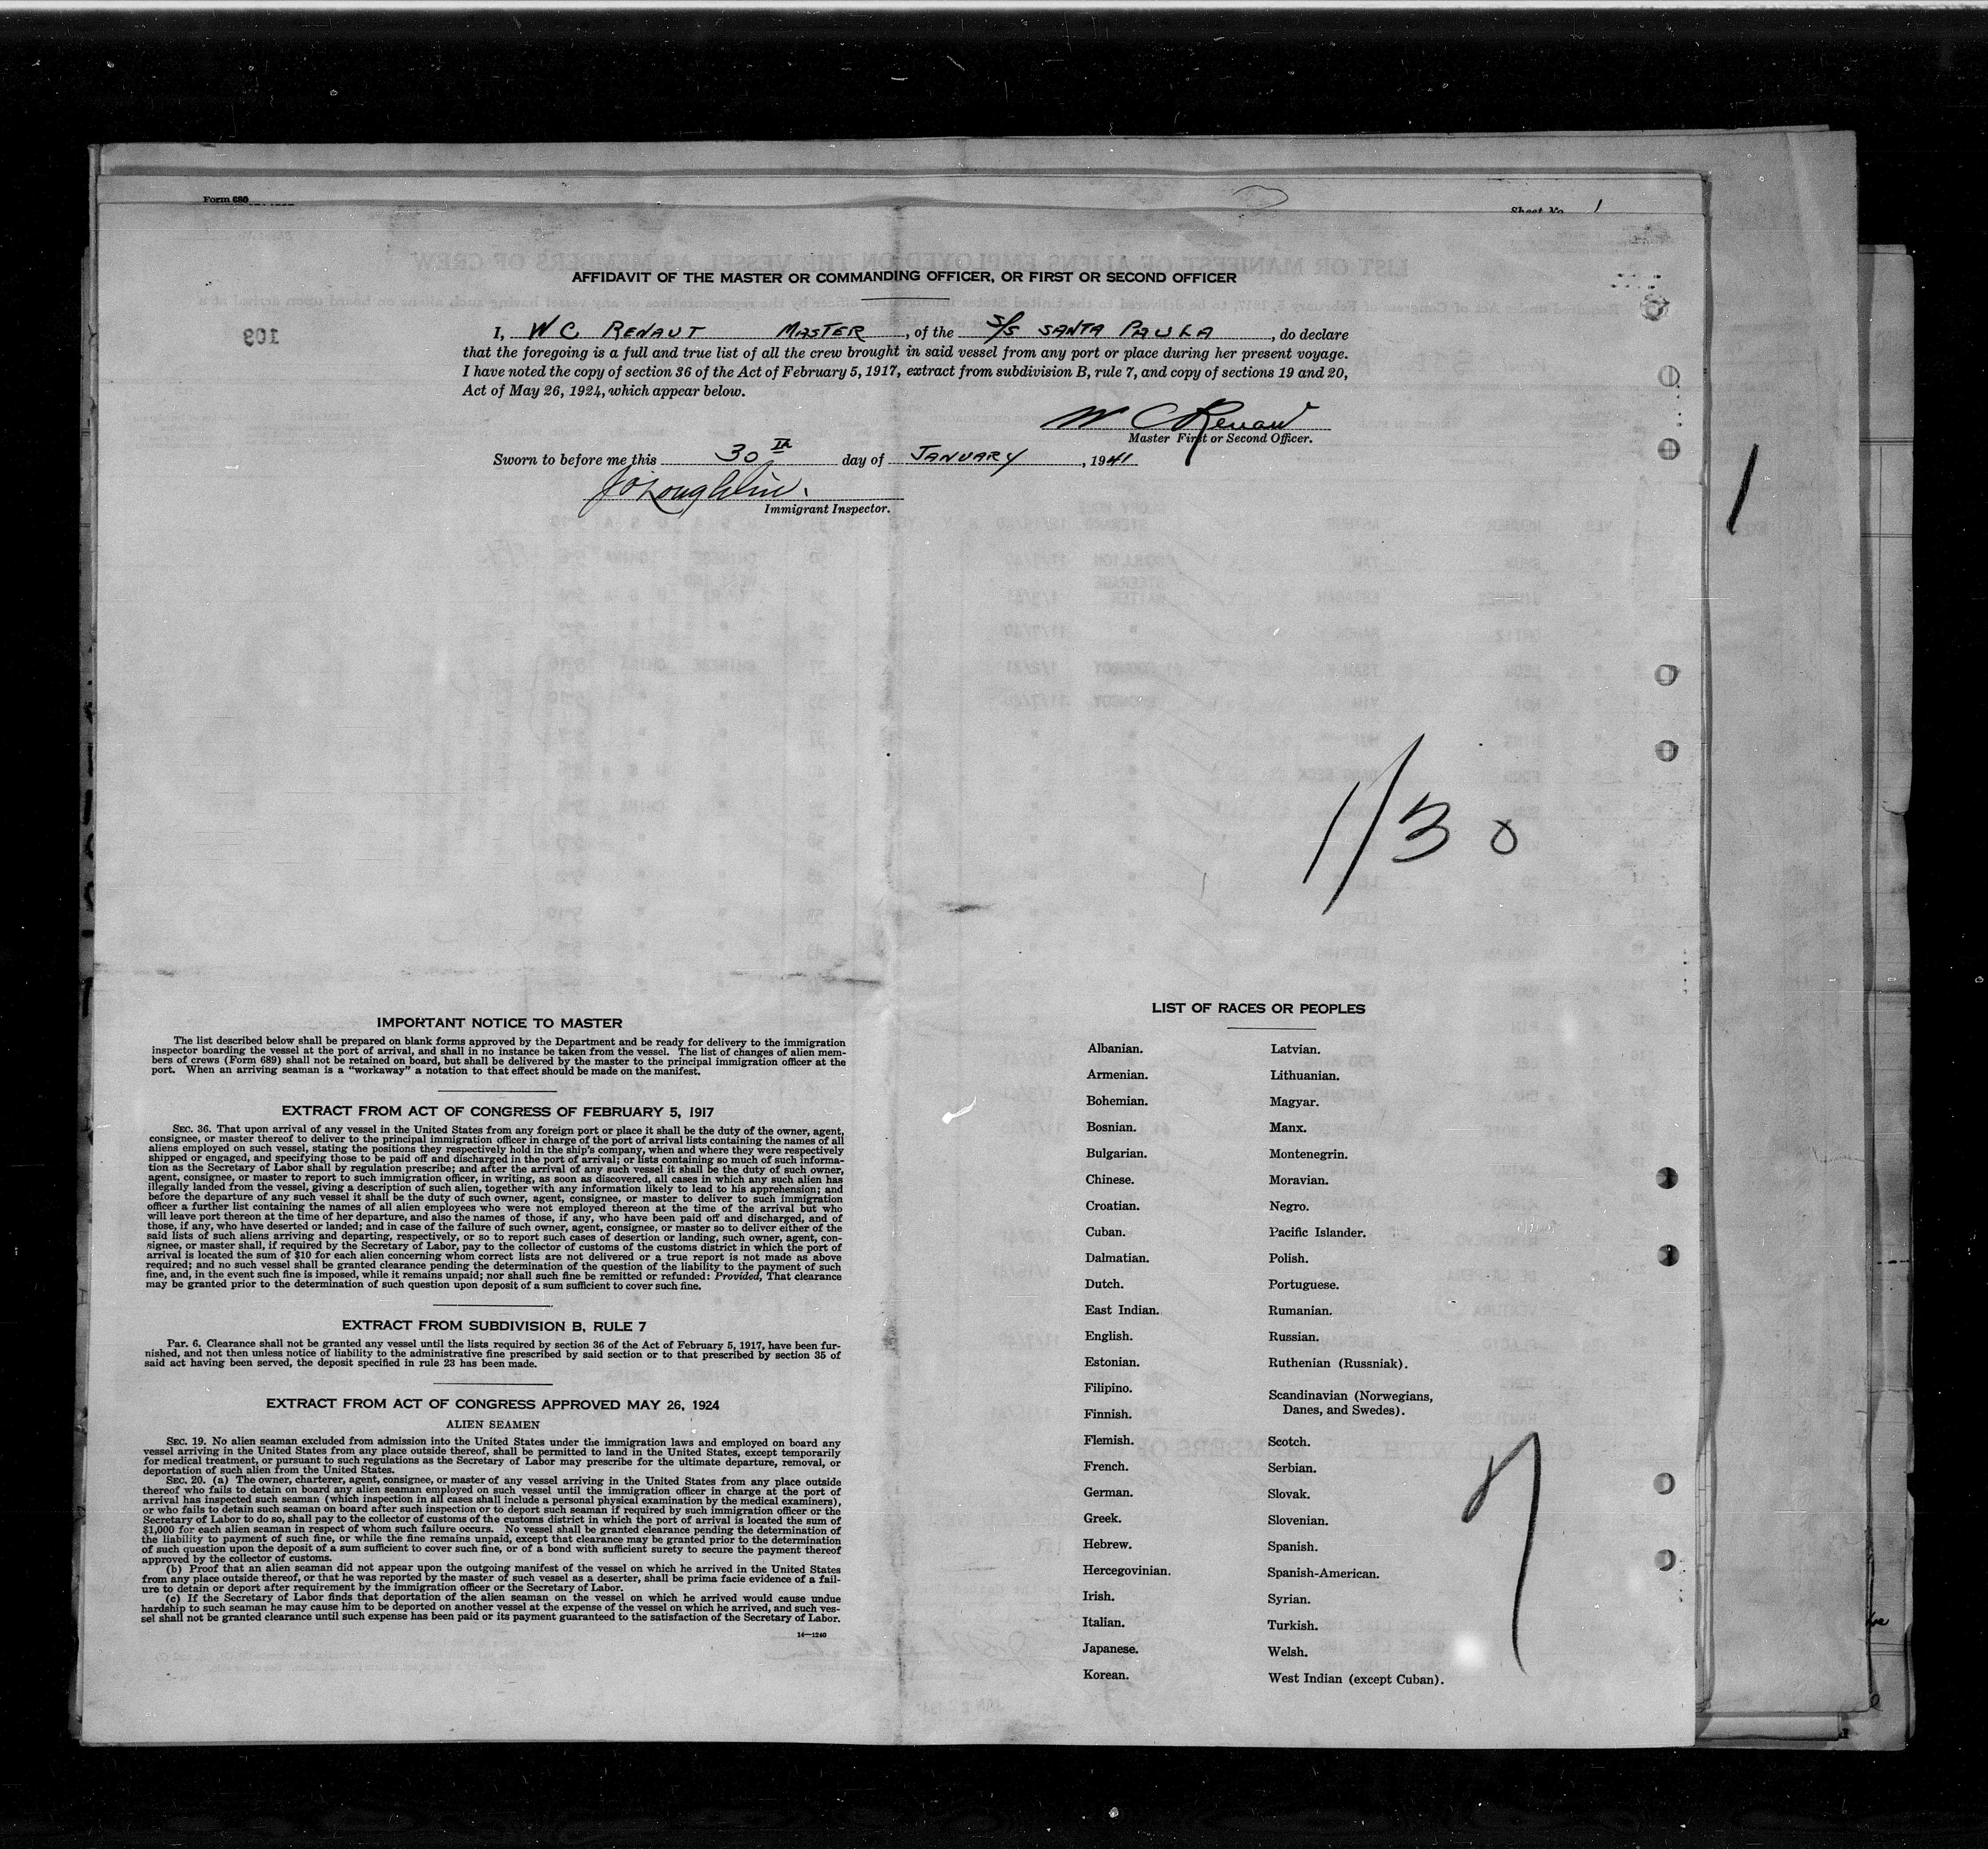 Form 680
Sheet No. 1
AFFIDAVIT OF THE MASTER OR COMMANDING OFFICER, OR FIRST OR SECOND OFFICER
I, W C RENAUT MASTER, of the S/S SANTA PAULA, do declare
that the foregoing is a full and true list of all the crew brought in said vessel from any port or place during her present voyage.
I have noted the copy of section 36 of the Act of February 5, 1917, extract from subdivision B, rule 7, and copy of sections 19 and 20,
Act of May 26, 1924, which appear below.
W C Renaut
Master First or Second Officer.
Sworn to before me this 30th day of JANUARY, 1941
J O'Loughlin.
Immigrant Inspector.
109
1
1/30
IMPORTANT NOTICE TO MASTER
The list described below shall be prepared on blank forms approved by the Department and be ready for delivery to the immigration
inspector boarding the vessel at the port of arrival, and shall in no instance be taken from the vessel. The list of changes of alien mem-
bers of crews (Form 689) shall not be retained on board, but shall be delivered by the master to the principal immigration officer at the
port. When an arriving seaman is a "workaway" a notation to that effect should be made on the manifest.
EXTRACT FROM ACT OF CONGRESS OF FEBRUARY 5, 1917
SEC. 36. That upon arrival of any vessel in the United States from any foreign port or place it shall be the duty of the owner, agent,
consignee, or master thereof to deliver to the principal immigration officer in charge of the port of arrival lists containing the names of all
aliens employed on such vessel, stating the positions they respectively hold in the ship's company, when and where they were respectively
shipped or engaged, and specifying those to be paid off and discharged in the port of arrival; or lists containing so much of such informa-
tion as the Secretary of Labor shall by regulation prescribe; and after the arrival of any such vessel it shall be the duty of such owner,
agent, consignee, or master to report to such immigration officer, in writing, as soon as discovered, all cases in which any such alien has
illegally landed from the vessel, giving a description of such alien, together with any information likely to lead to his apprehension; and
before the departure of any such vessel it shall be the duty of such owner, agent, consignee, or master to deliver to such immigration
officer a further list containing the names of all alien employees who were not employed thereon at the time of the arrival but who
will leave port thereon at the time of her departure, and also the names of those, if any, who have been paid off and discharged, and of
those, if any, who have deserted or landed; and in case of the failure of such owner, agent, consignee, or master so to deliver either of the
said lists of such aliens arriving and departing, respectively, or so to report such cases of desertion or landing, such owner, agent, con-
signee, or master shall, if required by the Secretary of Labor, pay to the collector of customs of the customs district in which the port of
arrival is located the sum of $10 for each alien concerning whom correct lists are not delivered or a true report is not made as above
required; and no such vessel shall be granted clearance pending the determination of the question of the liability to the payment of such
fine, and, in the event such fine is imposed, while it remains unpaid; nor shall such fine be remitted or refunded: Provided, That clearance
may be granted prior to the determination of such question upon deposit of a sum sufficient to cover such fine.
EXTRACT FROM SUBDIVISION B, RULE 7
Par. 6. Clearance shall not be granted any vessel until the lists required by section 36 of the Act of February 5, 1917, have been fur-
nished, and not then unless notice of liability to the administrative fine prescribed by said section or to that prescribed by section 35 of
said act having been served, the deposit specified in rule 23 has been made.
EXTRACT FROM ACT OF CONGRESS APPROVED MAY 26, 1924
ALIEN SEAMEN
SEC. 19. No alien seaman excluded from admission into the United States under the immigration laws and employed on board any
vessel arriving in the United States from any place outside thereof, shall be permitted to land in the United States, except temporarily
for medical treatment, or pursuant to such regulations as the Secretary of Labor may prescribe for the ultimate departure, removal, or
deportation of such alien from the United States.
SEC. 20. (a) The owner, charterer, agent, consignee, or master of any vessel arriving in the United States from any place outside
thereof who fails to detain on board any alien seaman employed on such vessel until the immigration officer in charge at the port of
arrival has inspected such seaman (which inspection in all cases shall include a personal physical examination by the medical examiners),
or who fails to detain such seaman on board after such inspection or to deport such seaman if required by such immigration officer or the
Secretary of Labor to do so, shall pay to the collector of customs of the customs district in which the port of arrival is located the sum of
$1,000 for each alien seaman in respect of whom such failure occurs. No vessel shall be granted clearance pending the determination of
the liability to payment of such fine, or while the fine remains unpaid, except that clearance may be granted prior to the determination
of such question upon the deposit of a sum sufficient to cover such fine, or of a bond with sufficient surety to secure the payment thereof
approved by the collector of customs.
(b) Proof that an alien seaman did not appear upon the outgoing manifest of the vessel on which he arrived in the United States
from any place outside thereof, or that he was reported by the master of such vessel as a deserter, shall be prima facie evidence of a fail-
ure to detain or deport after requirement by the immigration officer or the Secretary of Labor.
(c) If the Secretary of Labor finds that deportation of the alien seaman on the vessel on which he arrived would cause undue
hardship to such seaman he may cause him to be deported on another vessel at the expense of the vessel on which he arrived, and such ves-
sel shall not be granted clearance until such expense has been paid or its payment guaranteed to the satisfaction of the Secretary of Labor.
14—1240
LIST OF RACES OR PEOPLES
Albanian.
Armenian.
Bohemian.
Bosnian.
Bulgarian.
Chinese.
Croatian.
Cuban.
Dalmatian.
Dutch.
East Indian.
English.
Estonian.
Filipino.
Finnish.
Flemish.
French.
German.
Greek.
Hebrew.
Hercegovinian.
Irish.
Italian.
Japanese.
Korean.
Latvian.
Lithuanian.
Magyar.
Manx.
Montenegrin.
Moravian.
Negro.
Pacific Islander.
Polish.
Portuguese.
Rumanian.
Russian.
Ruthenian (Russniak).
Scandinavian (Norwegians,
Danes, and Swedes).
Scotch.
Serbian.
Slovak.
Slovenian.
Spanish.
Spanish-American.
Syrian.
Turkish.
Welsh.
West Indian (except Cuban).